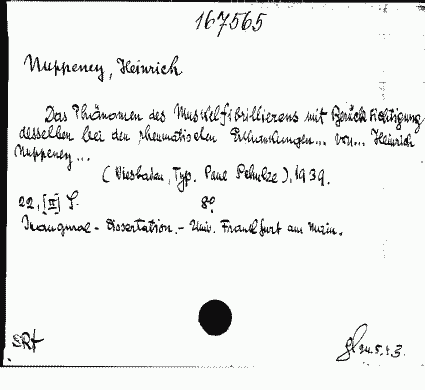 167565
Nuppeney, Heinrich
Das Phänomen des Muskelfibrillierens mit Berücksichtigung
desselben bei den rheumatischen Erkrankungen... von... Heinrich
Nuppeney...
(Wiesbaden, Typ. Paul Schulze), 1939.
22, [II] S. 8°
Inaugural-Dissertation.- Univ. Frankfurt am Main.